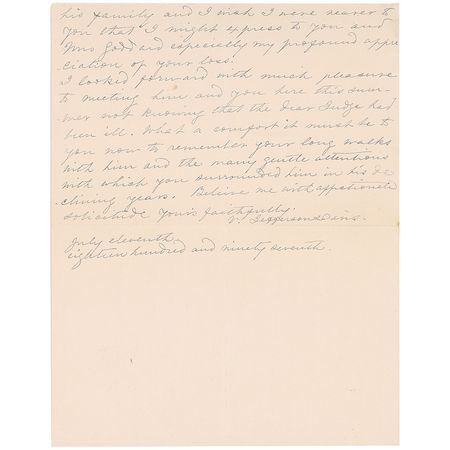 his family and I wish I were nearer to
you that I might express to you and
Mrs Goddard especially my profound appre
-ciation of your loss.
I looked forward with much pleasure
to meeting him and you here this sum-
mer not knowing that the dear Judge had
been ill. What a comfort it must be to
you now to remember your long walks
with him and the many gentle attentions
with which you surrounded him in his de
-clining years. Believe me with affectionate
solicitude yours faithfully.
V. Jefferson Davis.
July eleventh
eighteen hundred and ninety seventh.